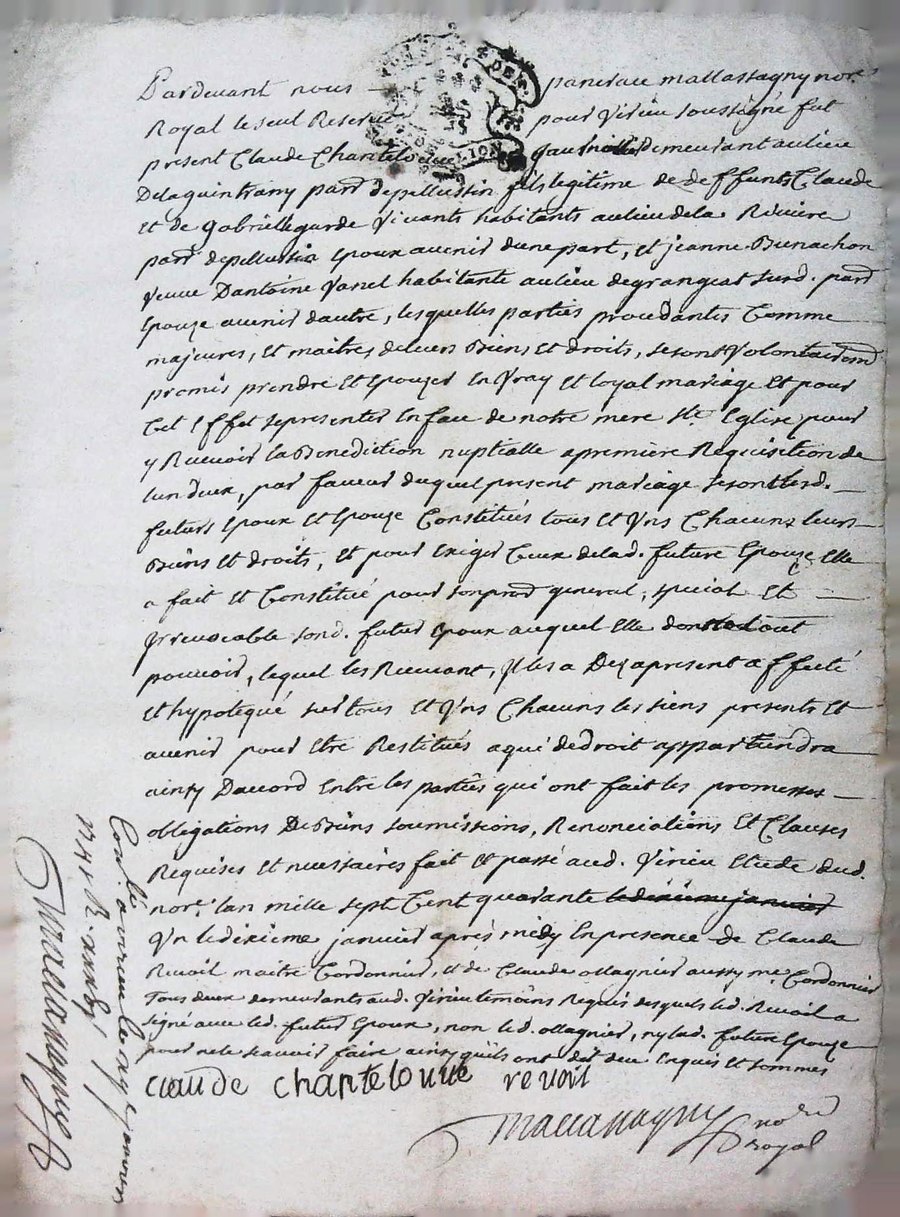 Pardevant nous pancrace mallassagny nore
Royal le seul Reservé pour Virieu soussigné fut
present Claude Chantelouve demeurant au lieu
Delaquintrany parr. depellussin fils legitime de deffunts Claude
et de gabrielle garde Vivants habitants au lieu dela Riviere
parr. depellussin Epoux avenir dune part, et jeanne Bunachon
veuve Dantoine Vanel habitante au lieu degrangeat susd. parr.
Epouze avenir dautre, lesquelles parties procedantes Comme
majeures, et maitres deleurs Biens et droits, se sont Volontairemt
promis prendre et Epouzer en Vray et loyal mariage et pour
Cet Effet se presenter en face de notre mere Ste Eglize pour
y Recevoir la Benediction nuptialle a premiere Requisition de
lun deux, par faveur duquel present mariage se sont lesd.
futurs Epoux et Epouze Constitués tous et Uns Chacuns leurs
Biens et droits, et pour exiger Ceux delad. future Epouze Elle
a fait et Constitué pour son procr. general, special et
Irrevocable sond. futur Epoux auquel elle donne tout
pouvoir, lequel les Recevant, Il les a Dez apresent affecté
et hypotequé sur tous et Uns Chacuns les siens presents et
avenir pour Etre Restitués a qui de droit appartiendra
ainsy Daccord Entre les parties qui ont fait les promesses
obligations De Biens soumissions, Renonciations et Clauses
Requises et necessaires fait et passé aud. Virieu Etude dud.
nore. lan mille sept Cent quarante le dixieme janvier
Un le dixieme janvier après midy En presence de Claude
Revoil maitre Cordonnier, et de Claude ollagnier aussy me. Cordonnier
Tous deux demeurants aud. Virieu temoins Requis desquels led. Revoil a
signé avec led. futur Epoux, non led. ollagnier, ny lad. future Epouze
pour ne le scavoir faire ainsy quils ont dit de ce Enquis et sommés
claude chantelouve revoil
Mallassagny nore
royal
Conllé a virieu le janvier
Mallassagny